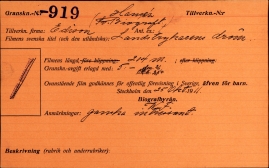 Granskn.-N:r -919 Tillverkn.-N:r
Tillverkn. firma: Edison Ant. ex.:
Filmens svenska titel (och den utländska): Landstrykarens dröm
Filmens längd, före klippning: 204 m. ; efter klippning:
Gransknings-avgift erlagd med: 5:-
Ovanstående film godkännes för offentlig förevisning i Sverige. Även för barn.
Stockholm den 25 Okt 1911.
Biografbyrån.
Anmärkningar: ganska
Beskrivning (rubrik och underrubriker):